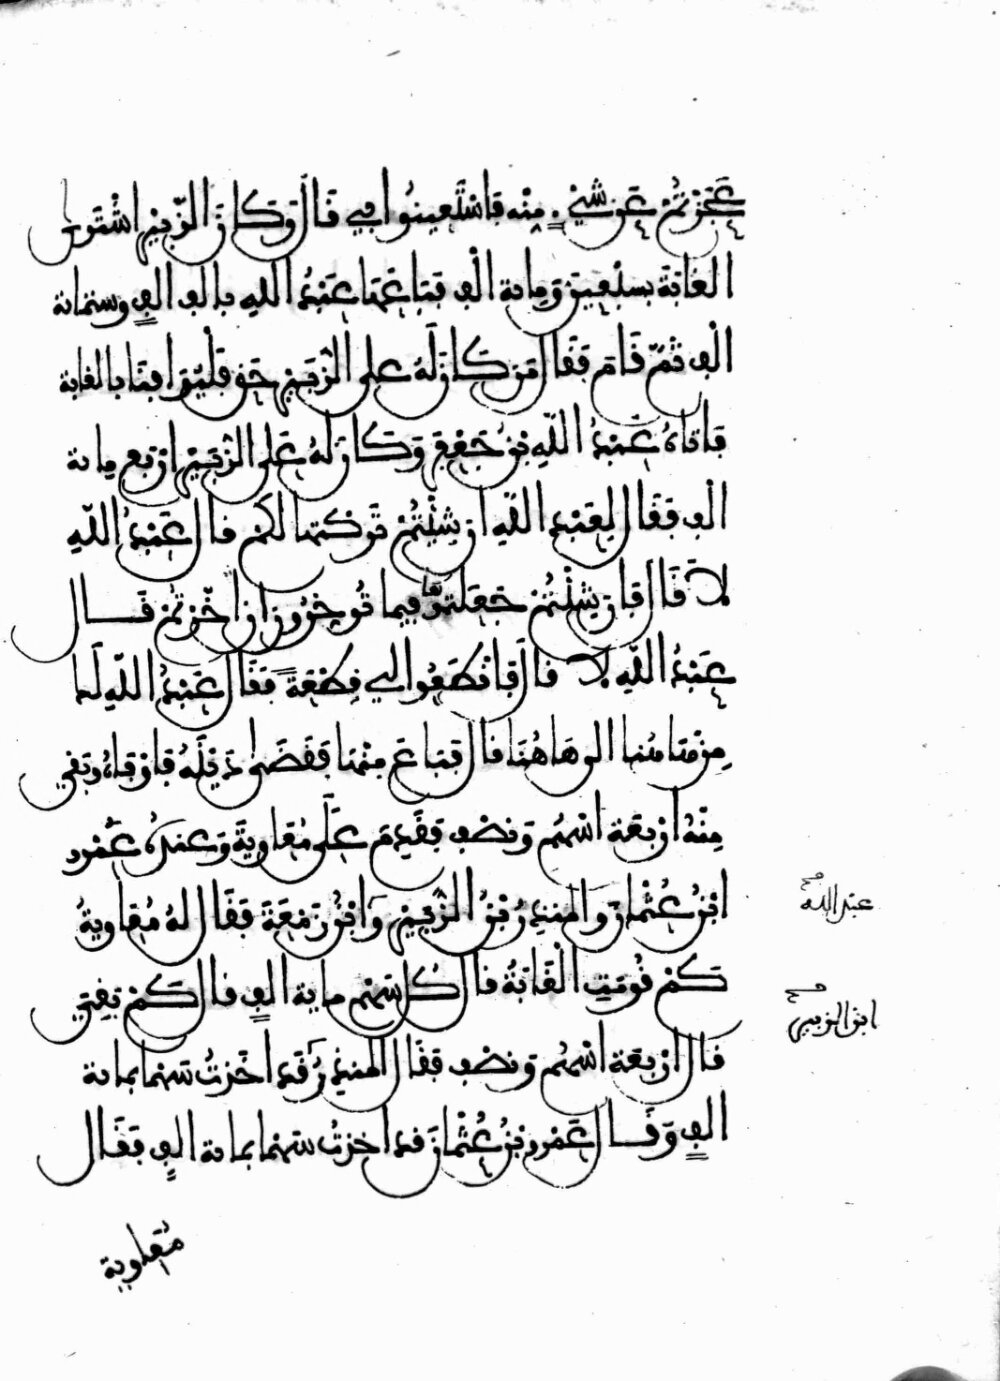 عَجَزْتُمْ عَن شَيْءٍ مِنْه فَاسْتَعِينُوا بِي قَالَ وَكَانَ الزُّبَيْرُ اشْتَرَى
الغَابَةَ بِسَبْعِينَ وَمِائة أَلْف فَبَاعَهَا عَبْدُ اللهِ بِألف ألفٍ وستمائة
ألْف ثُمَّ قَامَ فَقَالَ مَن كَانَ لَهُ عَلى الزُّبَيْرِ حَق فَلْيُوَافِنَا بالغابة
فَأتاهُ عَبْدُ اللّهِ بْنُ جَعْفَر وَكَانَ لَهُ عَلى الزُّبَيْرِ أرْبع مِائة
ألْف فَقَالَ لِعَبْدِ اللّهِ ان شِئْتُمْ تَرَكتها لَكُمْ قال عَبْدُ اللّهِ
لاَ قَالَ فَإن شِئْتُمْ جَعَلتموهَا فِيمَا تُوخِرُونَ إن أخَّرْتُمْ فَقَال
عَبْدُ اللّهِ لا قالَ فَاقْطَعُوا لِي قِطْعَةً فَقَالَ عَبْدُ اللّهِ لَكَ
مِنْ هَاهُنا الى هَاهُنَا قال فَبَاعَ مِنْهَا فَقَضَى دَيْنَهُ فَأوْفَاهُ وَبَقِي
مِنْهُ أرْبعَة أسْهُم وَنصْف فَقَدِمَ عَلَى مُعَاوِيَةَ وَعِندَهُ عَمْرو
ابْنُ عُثْمَان وَالمنذِرُ بْنُ الزُّبَيْرِ وَابْنُ زَمْعَةَ فَقَالَ لهُ مُعَاوِيَةُ
كَمْ قُوِّمَتِ الْغَابَةُ قالَ كُلُّ سَهْمٍ مِاية ألفٍ قالَ كَمْ بَقِيَ
قال أرْبعَة أسْهُم وَنصْف فَقَالَ المنذِرُ قَد أخَذتُ سَهْمًا بمائة
ألفٍ وَقَال عَمْرو بْنُ عُثْمَانَ قد أخَذتُ سَهْمًا بمائة ألفٍ فَقَالَ
مُعَاوِية
عبد الله
صح
ابن الزبير
صح